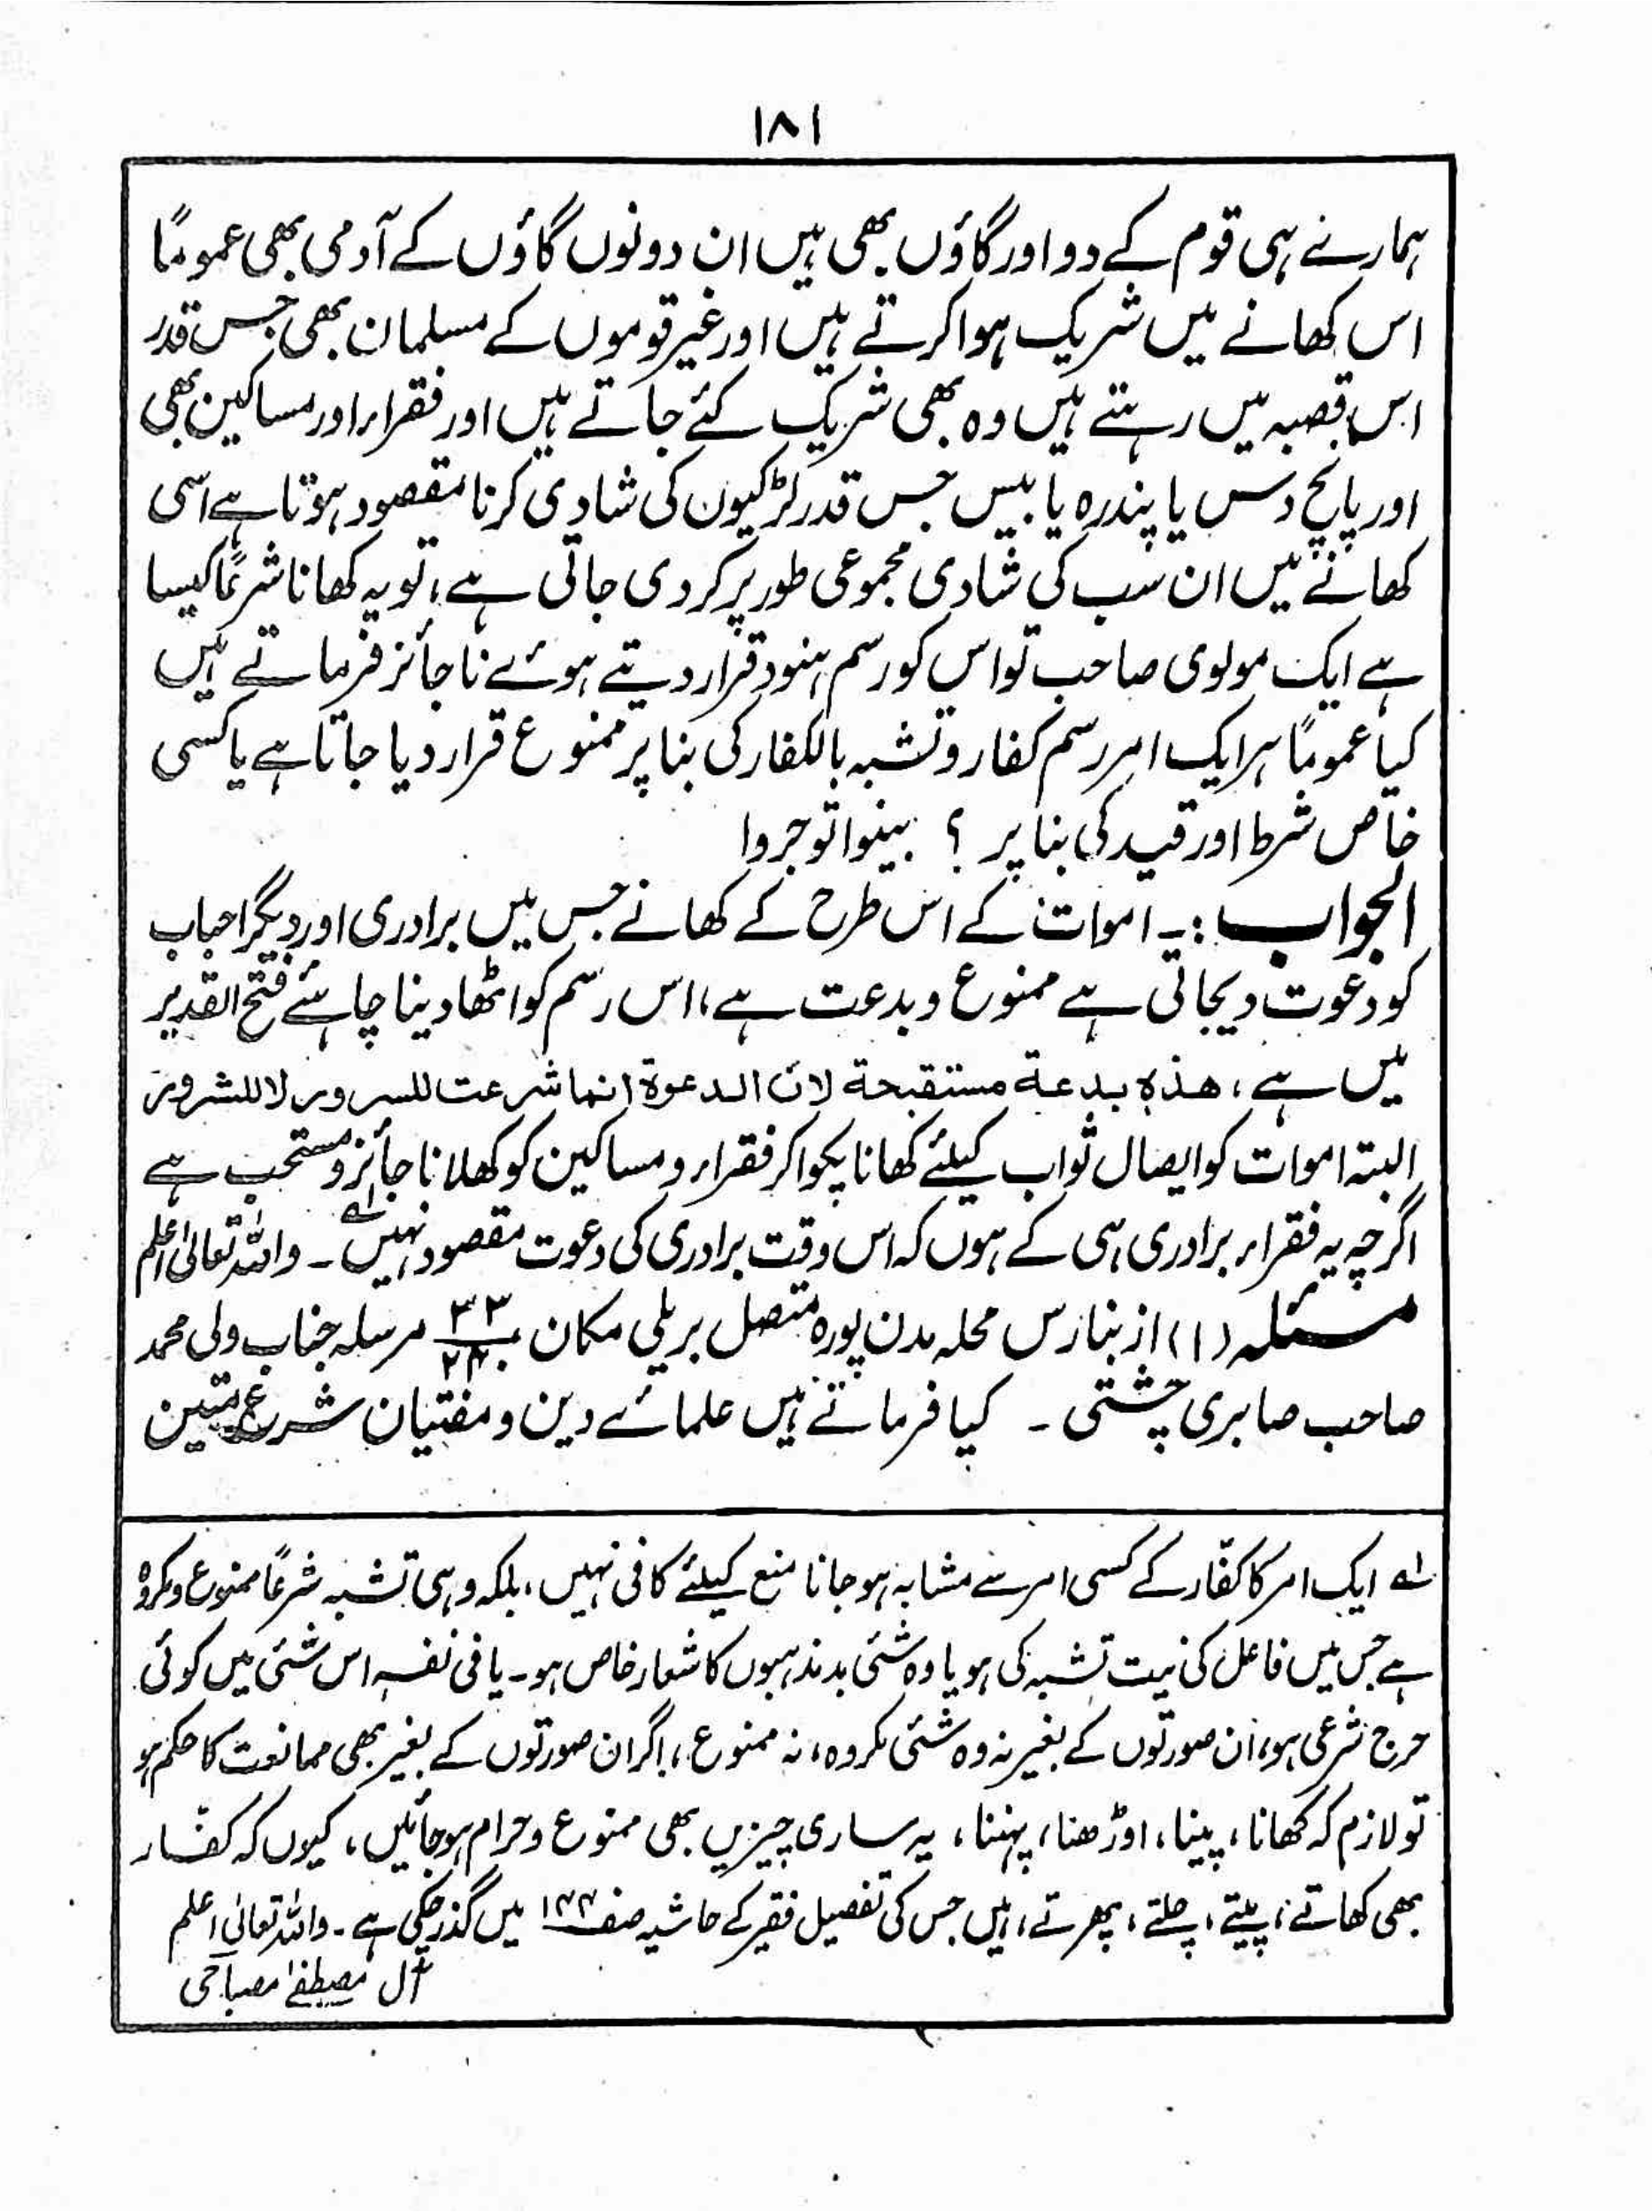 ۱۸۱
ہمارے ہی قوم کے دو اور گاؤں بھی ہیں ان دونوں گاؤں کے آدمی بھی عموماً
اس کھانے میں شریک ہوا کرتے ہیں اور غیر قوموں کے مسلمان بھی جس قدر
اس قصبہ میں رہتے ہیں وہ بھی شریک کئے جاتے ہیں اور فقراء اور مساکین بھی
اور پانچ دس یا پندرہ یا بیس جس قدر لڑکیوں کی شادی کرنا مقصود ہوتا ہے اسی
کھانے میں ان سب کی شادی مجموعی طور پر کر دی جاتی ہے، تو یہ کھانا شرعاً کیسا
ہے ایک مولوی صاحب تو اس کو رسم ہنود قرار دیتے ہوئے ناجائز فرماتے ہیں
کیا عموماً ہر ایک امر رسم کفار و تشبہ بالکفار کی بنا پر ممنوع قرار دیا جاتا ہے یا کسی
خاص شرط اور قید کی بنا پر ؟ بینوا توجروا
الجواب :۔ اموات کے اس طرح کے کھانے جس میں برادری اور دیگر احباب
کو دعوت دیجاتی ہے ممنوع و بدعت ہے، اس رسم کو اٹھا دینا چاہئے فتح القدیر
میں ہے، هذه بدعة مستقبحة لان الدعوة انما شرعت للسرور لا للشرور
البتہ اموات کو ایصال ثواب کیلئے کھانا پکوا کر فقراء و مساکین کو کھلانا جائز و مستحب ہے
اگرچہ یہ فقراء برادری ہی کے ہوں کہ اس وقت برادری کی دعوت مقصود نہیں ؎۱ ۔ واللہ تعالیٰ اعلم
مسئلہ (۱) از بنارس محلہ مدن پورہ متصل بریلی مکان مرسلہ جناب ولی محمد
صاحب صابری چشتی ۔ کیا فرماتے ہیں علمائے دین و مفتیان شرع متین
؎۱ ایک امر کا کفّار کے کسی امر سے مشابہ ہو جانا منع کیلئے کافی نہیں، بلکہ وہی تشبہ شرعاً ممنوع و مکروہ
ہے جس میں فاعل کی نیت تشبہ کی ہو یا وہ شئی بدمذہبوں کا شعار خاص ہو۔ یا فی نفسہ اس شئی میں کوئی
حرج شرعی ہو، ان صورتوں کے بغیر نہ وہ شئی مکروہ، نہ ممنوع، اگر ان صورتوں کے بغیر بھی ممانعت کا حکم ہو
تو لازم کہ کھانا، پینا، اوڑھنا، پہننا، یہ ساری چیزیں بھی ممنوع و حرام ہو جائیں، کیوں کہ کفّار
بھی کھاتے، پیتے، چلتے، پھرتے، ہیں جس کی تفصیل فقیر کے حاشیہ صفہ میں گذر چکی ہے۔ واللہ تعالیٰ اعلم
آل مصطفےٰ مصباحی